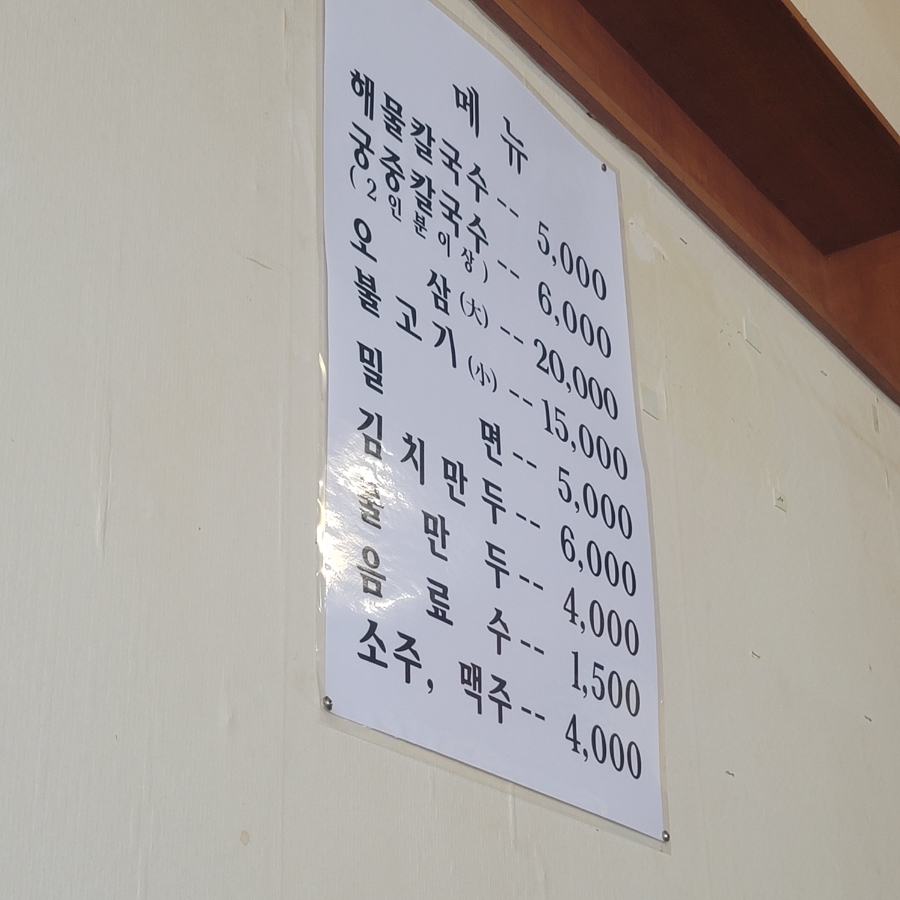 메뉴
해물칼국수-- 5,000
궁중칼국수-- 6,000
(2인분이상)
오 삼(大)--20,000
불고기(小)--15,000
밀 면-- 5,000
김치만두-- 6,000
물 만 두-- 4,000
음 료 수-- 1,500
소주, 맥주-- 4,000